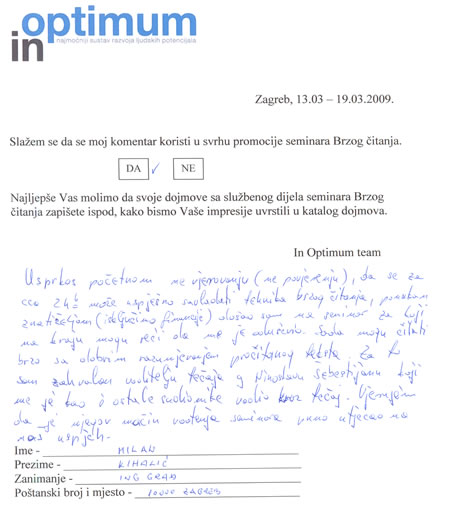 in optimum
najmoćniji sustav razvoja ljudskih potencijala
Zagreb, 13.03 – 19.03.2009.
Slažem se da se moj komentar koristi u svrhu promocije seminara Brzog čitanja.
DA ✓ NE
Najljepše Vas molimo da svoje dojmove sa službenog dijela seminara Brzog
čitanja zapišete ispod, kako bismo Vaše impresije uvrstili u katalog dojmova.
In Optimum team
Usprkos početnom ne vjerovanju (ne povjerenju), da se za
cca 24 h može uspješno svladati tehnika brzog čitanja,
znatiželjom (isključivo financije) došao sam na seminar za koji
na kraju mogu reći da me je oduševio. Sada mogu čitati
brzo sa dobrim razumjevanjem pročitanog teksta. Za to
sam zahvalan voditelju tečaja g. Ninoslavu Šebestijanu koji
me je kao i ostale sudionike vodio kroz tečaj. Vjerujem
da je njegov način vođenja seminara puno utjecao na
naš uspjeh.
Ime - MILAN
Prezime - KIHALIĆ
Zanimanje - ING GRAĐ
Poštanski broj i mjesto - 10000 ZAGREB